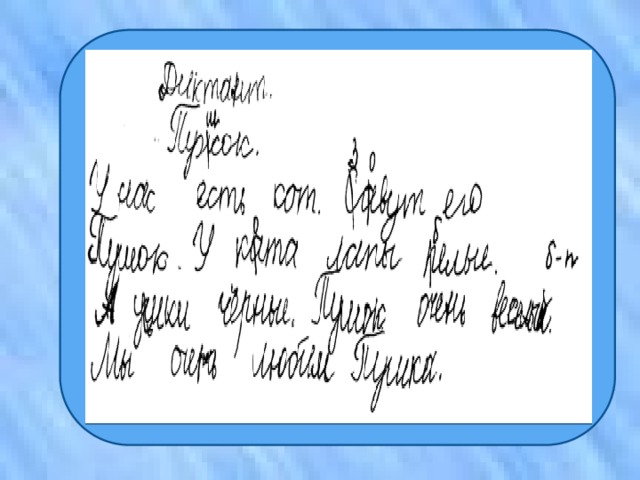 Диктант.
Пушок.
У нас есть кот. Зовут его
Пушок. У кота лапы белые. б-п
А ушки чёрные. Пушок очень весёлый.
Мы очень любим Пушка.